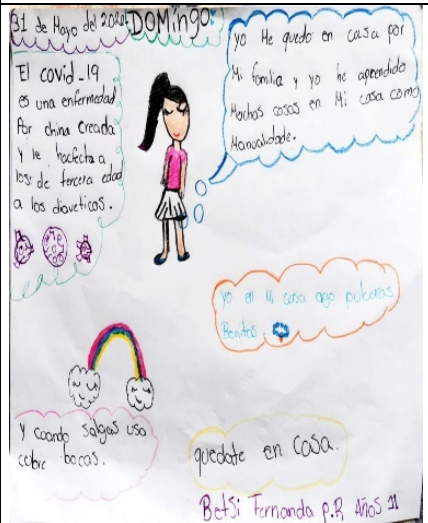 31 de Mayo del 2020
DOMingo:
El covid-19
es una enfermedad
Por china Creada
y le hacfecta a
los de tercera edad
a los diaveticos.
yo He quedo en casa por
Mi familia y yo he aprendido
Muchas cosas en Mi casa como
Manualidade.
yo en Mi casa ago pulceras
Bonitas
y cuando salgas usa
cubre bocas.
quedate en casa.
Betsi Fernanda P.R Años 11